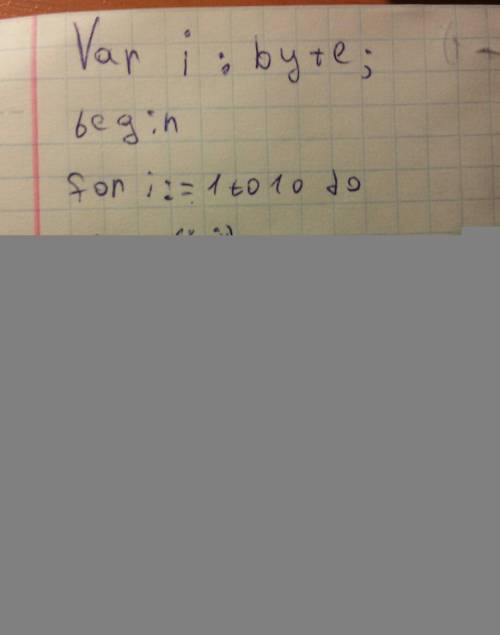 Var i : byte;
begin
for i:= 1 to 10 do